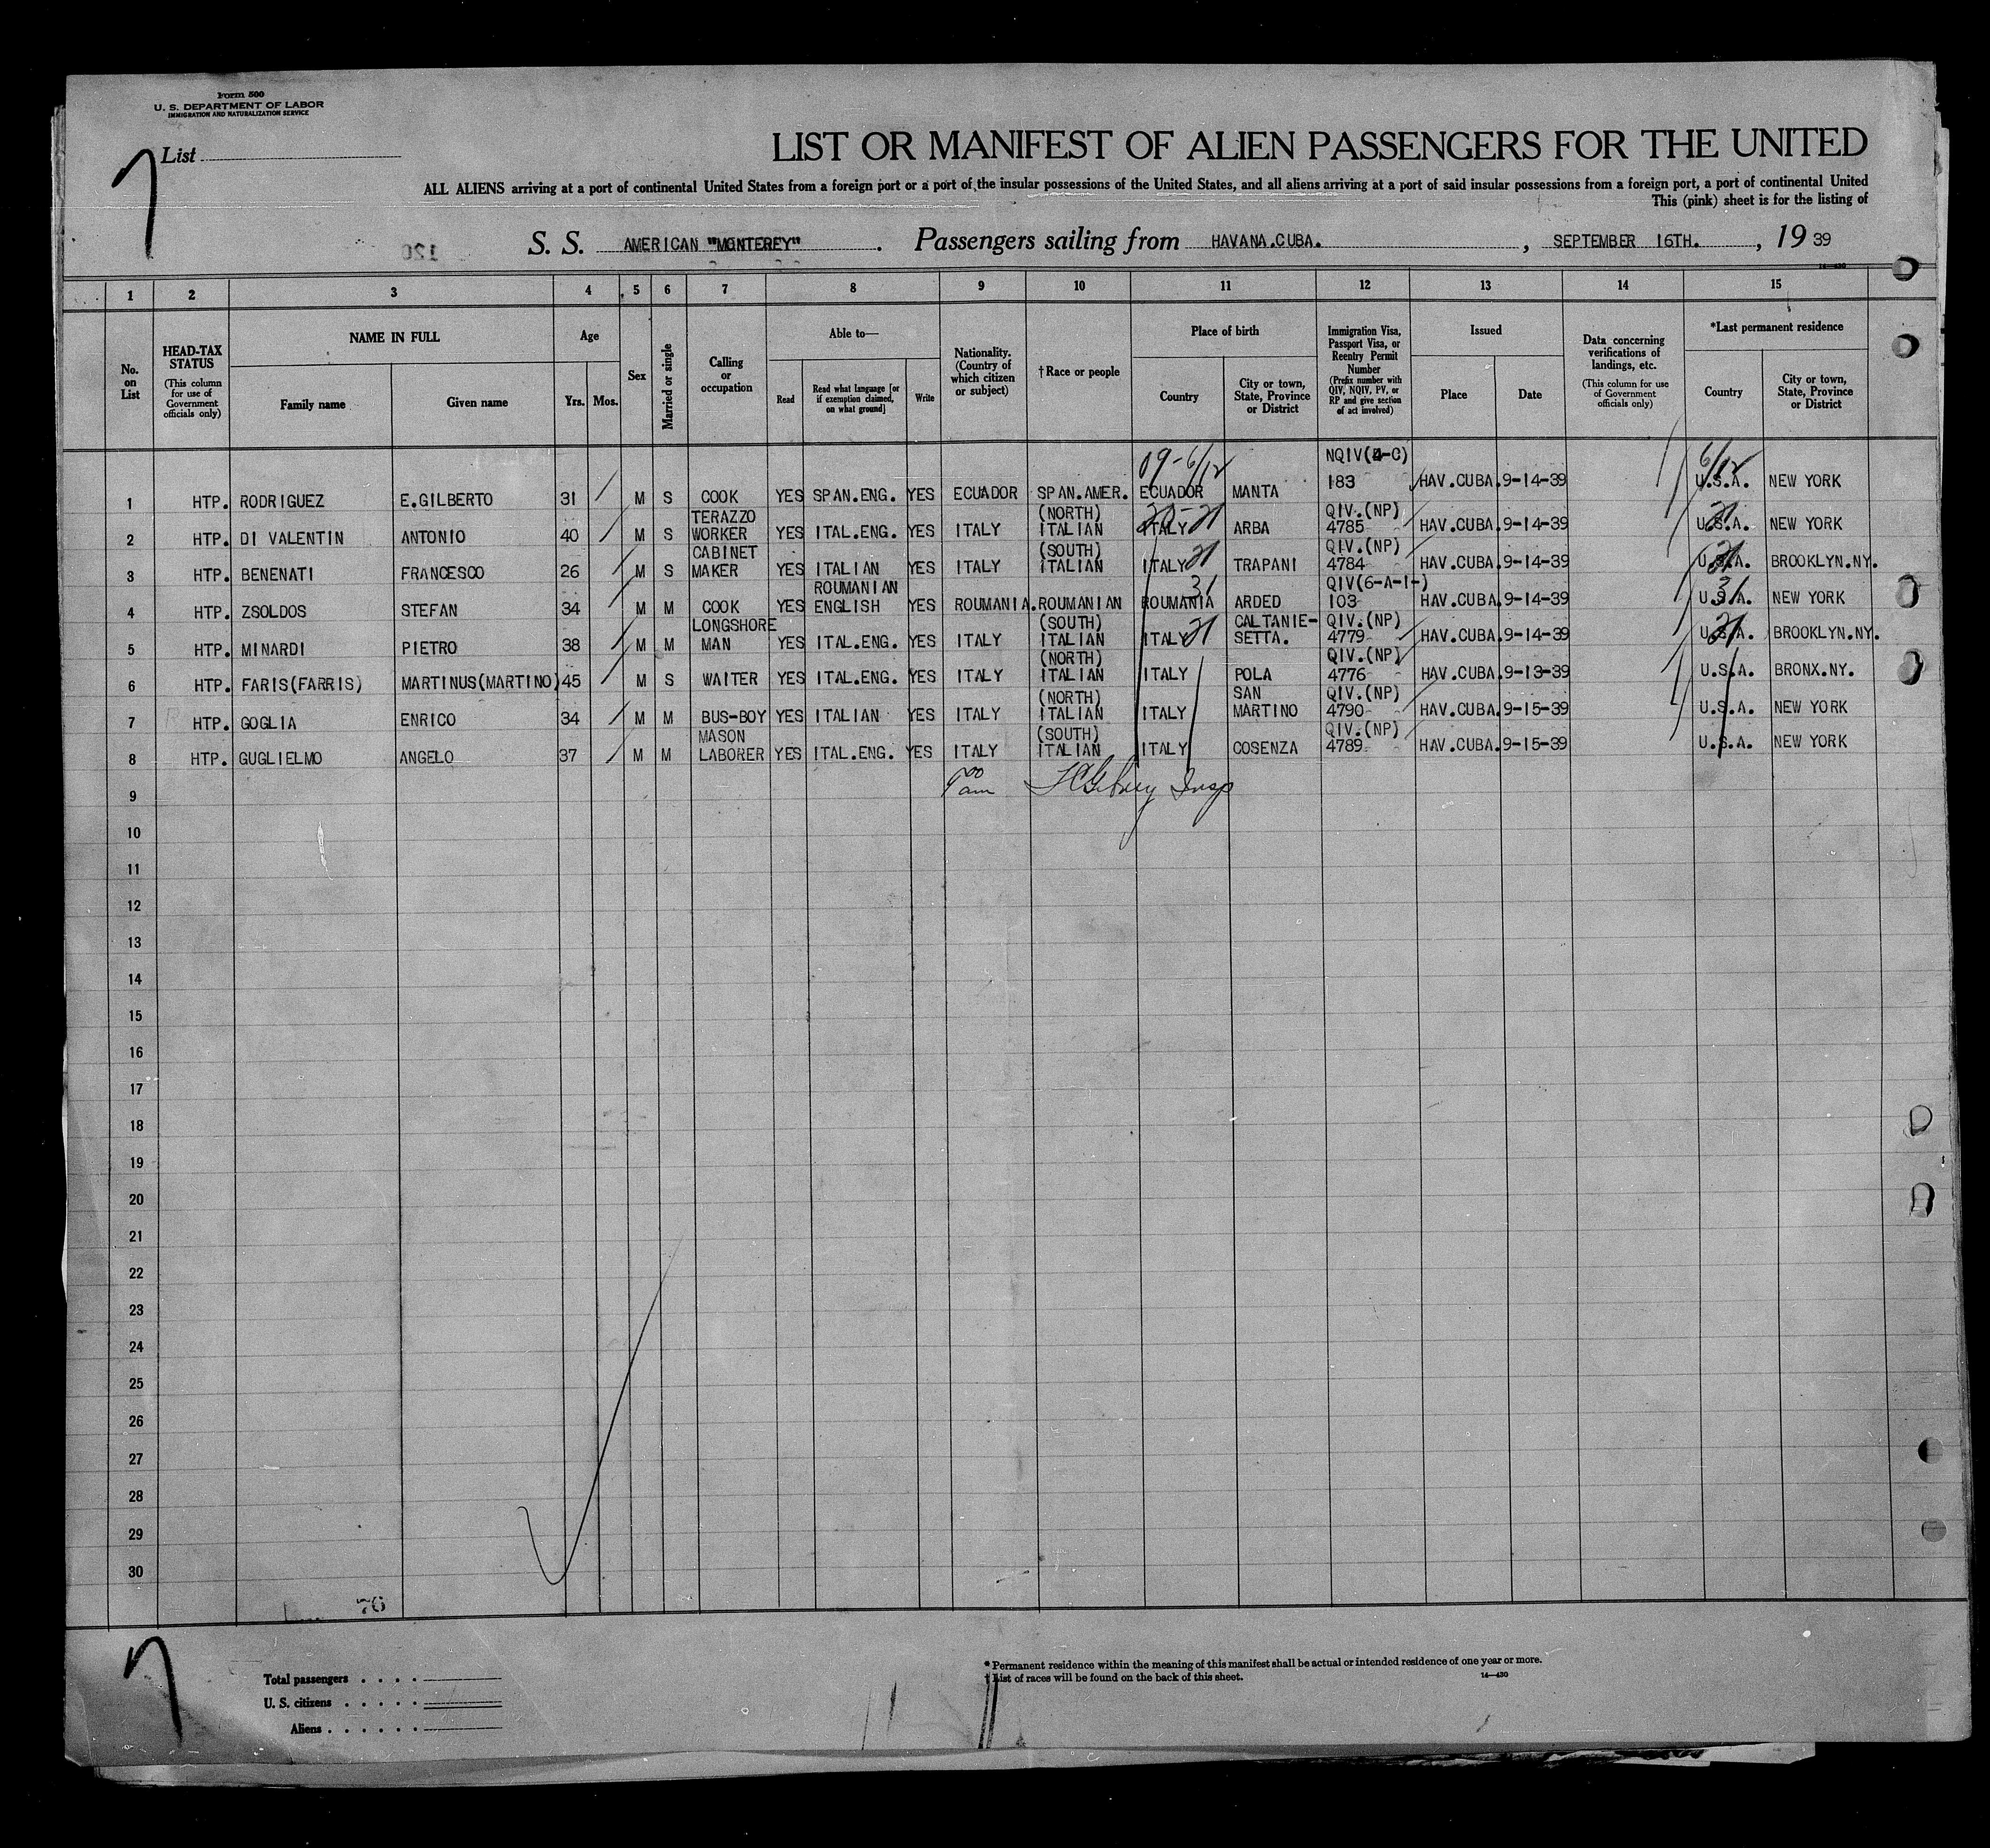 Form 500
U. S. DEPARTMENT OF LABOR
IMMIGRATION AND NATURALIZATION SERVICE
7
List
LIST OR MANIFEST OF ALIEN PASSENGERS FOR THE UNITED
ALL ALIENS arriving at a port of continental United States from a foreign port or a port of the insular possessions of the United States, and all aliens arriving at a port of said insular possessions from a foreign port, a port of continental United
This (pink) sheet is for the listing of
120
S. S. AMERICAN "MONTEREY". Passengers sailing from HAVANA.CUBA. , SEPTEMBER 16TH. , 19 39
14—430
1 2 3 4 5 6 7 8 9 10 11 12 13 14 15
No. on List
HEAD-TAX STATUS (This column for use of Government officials only)
NAME IN FULL
Family name
Given name
Age
Yrs. Mos.
Sex
Married or single
Calling or occupation
Able to—
Read
Read what language [or if exemption claimed, on what ground]
Write
Nationality. (Country of which citizen or subject)
†Race or people
Place of birth
Country
City or town, State, Province or District
Immigration Visa, Passport Visa, or Reentry Permit Number (Prefix number with QIV, NQIV, PV, or RP and give section of act involved)
Issued
Place
Date
Data concerning verifications of landings, etc. (This column for use of Government officials only)
*Last permanent residence
Country
City or town, State, Province or District
09-6/12 NQIV(4-C) 6/12
1 HTP. RODRIGUEZ E.GILBERTO 31 M S COOK YES SPAN.ENG. YES ECUADOR SPAN.AMER. ECUADOR MANTA 183 HAV.CUBA. 9-14-39 U.S.A. NEW YORK
TERAZZO (NORTH) QIV.(NP)
2 HTP. DI VALENTIN ANTONIO 40 M S WORKER YES ITAL.ENG. YES ITALY ITALIAN ITALY 21 ARBA 4785 HAV.CUBA. 9-14-39 U.S.A. 21 NEW YORK
CABINET (SOUTH) QIV.(NP)
3 HTP. BENENATI FRANCESCO 26 M S MAKER YES ITALIAN YES ITALY ITALIAN ITALY 21 TRAPANI 4784 HAV.CUBA. 9-14-39 U.S.A. 21 BROOKLYN.NY.
ROUMANIAN 31 QIV(6-A-1-) 31
4 HTP. ZSOLDOS STEFAN 34 M M COOK YES ENGLISH YES ROUMANIA. ROUMANIAN ROUMANIA ARDED 103 HAV.CUBA. 9-14-39 U.S.A. NEW YORK
LONGSHORE (SOUTH) CALTANIE- QIV.(NP)
5 HTP. MINARDI PIETRO 38 M M MAN YES ITAL.ENG. YES ITALY ITALIAN ITALY 21 SETTA. 4779 HAV.CUBA. 9-14-39 U.S.A. 21 BROOKLYN.NY.
(NORTH) QIV.(NP)
6 HTP. FARIS(FARRIS) MARTINUS(MARTINO) 45 M S WAITER YES ITAL.ENG. YES ITALY ITALIAN ITALY POLA 4776 HAV.CUBA. 9-13-39 U.S.A. BRONX.NY.
(NORTH) SAN QIV.(NP)
7 HTP. GOGLIA ENRICO 34 M M BUS-BOY YES ITALIAN YES ITALY ITALIAN ITALY MARTINO 4790 HAV.CUBA. 9-15-39 U.S.A. NEW YORK
MASON (SOUTH) QIV.(NP)
8 HTP. GUGLIELMO ANGELO 37 M M LABORER YES ITAL.ENG. YES ITALY ITALIAN ITALY COSENZA 4789 HAV.CUBA. 9-15-39 U.S.A. NEW YORK
9 am Insp
10
11
12
13
14
15
16
17
18
19
20
21
22
23
24
25
26
27
28
29
30
76
7
Total passengers
U. S. citizens
Aliens
* Permanent residence within the meaning of this manifest shall be actual or intended residence of one year or more.
† List of races will be found on the back of this sheet.
14—430